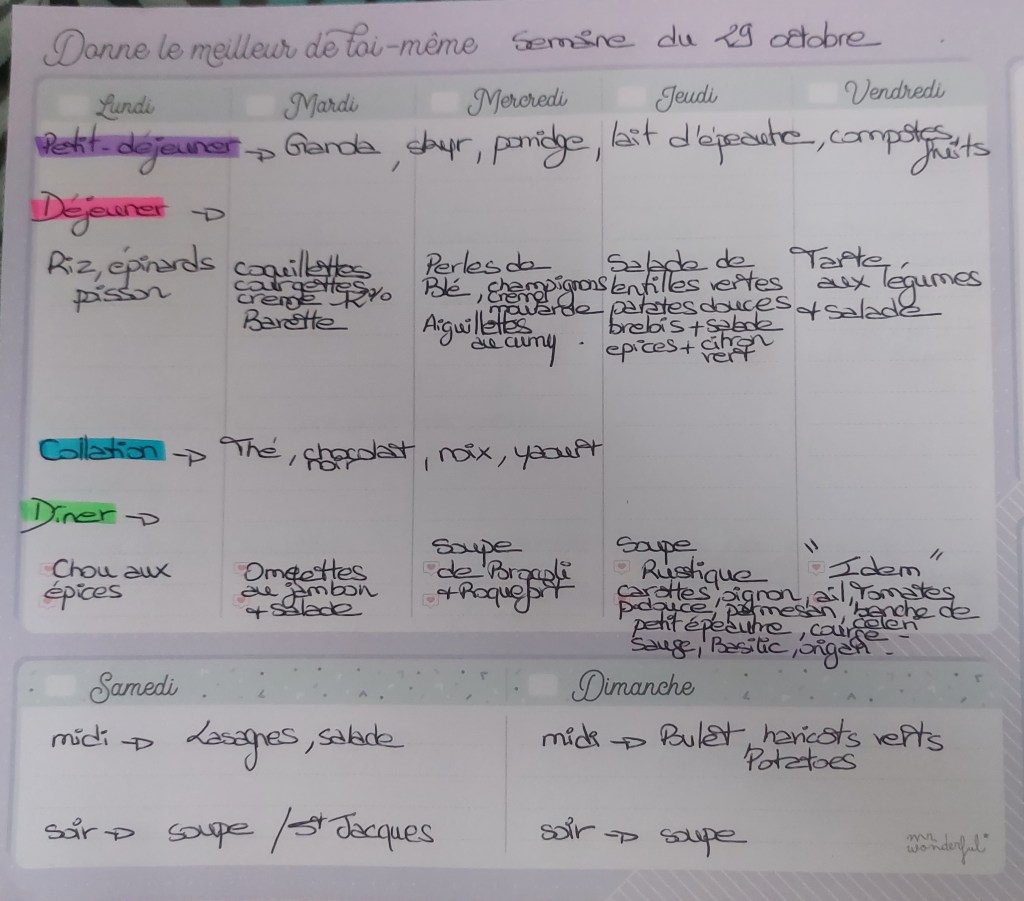 Donne le meilleur de toi-même Semaine du 29 octobre
Lundi Mardi Mercredi Jeudi Vendredi
Petit-déjeuner → Granola, skyr, porridge, lait d'épeautre, compotes,
fruits
Déjeuner →
Riz, épinards
poisson
Coquillettes
courgettes
crème 12%
Barette
Perles de
Blé, champignons
crème
Moutarde
Aiguillettes
au curry.
Salade de
lentilles vertes
patates douces
brebis + salade
epices + citron
vert
Tarte
aux légumes
+ salade
Collation → Thé, chocolat, noix, yaourt
noir
Diner →
Chou aux
épices
Omelettes
au jambon
+ salade
Soupe
de Brocoli
+ Roquefort
Soupe
Rustique
carottes, oignon, ail, Tomates
p.douce, parmesan, branche de
céleri
petit épeautre, courge -
Sauge, Basilic, origan -
" Idem "
Samedi
midi → Lasagnes, salade
soir → soupe / St Jacques
Dimanche
midi → Poulet, haricots verts
Potatoes
soir → soupe
mr.
wonderful*